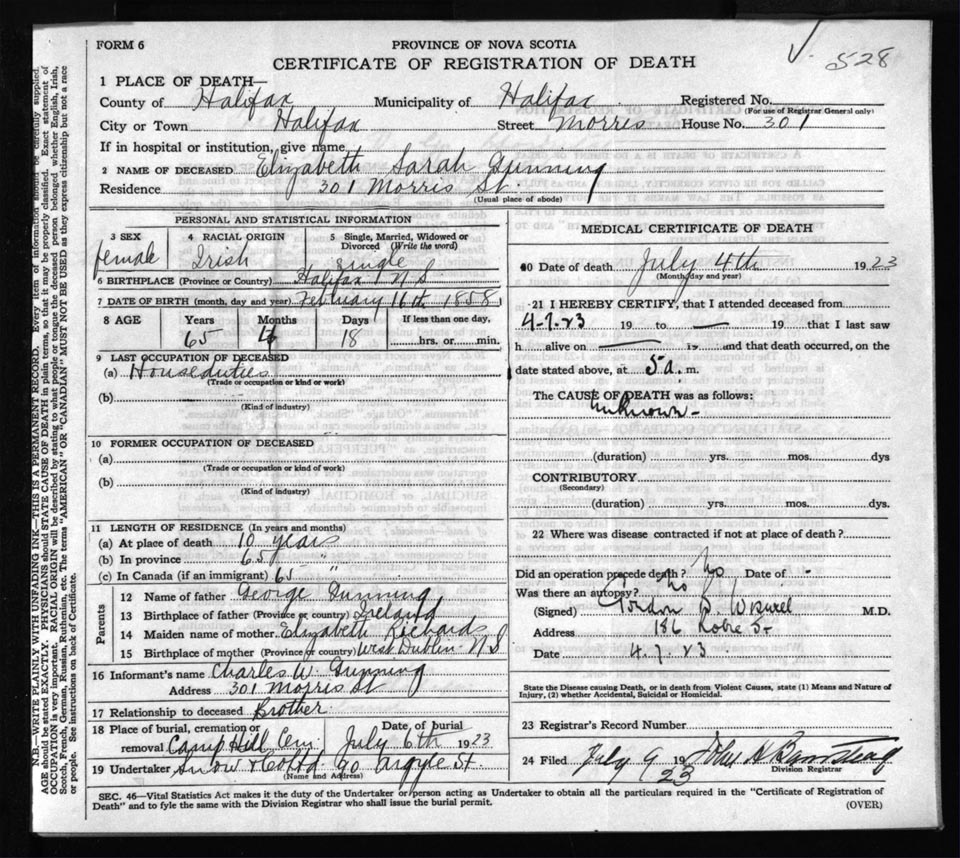 FORM 6
PROVINCE OF NOVA SCOTIA
CERTIFICATE OF REGISTRATION OF DEATH
528
1 PLACE OF DEATH—
County of Halifax Municipality of Halifax Registered No.
(For use of Registrar General only)
City or Town Halifax Street Morris House No. 301
If in hospital or institution, give name
2 NAME OF DECEASED Elizabeth Sarah Gunning
Residence 301 Morris St.
(Usual place of abode)
PERSONAL AND STATISTICAL INFORMATION
3 SEX female
4 RACIAL ORIGIN Irish
5 Single, Married, Widowed or Divorced (Write the word) single
6 BIRTHPLACE (Province or Country) Halifax N S
7 DATE OF BIRTH (month, day and year) February 16th 1858
8 AGE Years Months Days If less than one day,
65 4 18 hrs. or min.
9 LAST OCCUPATION OF DECEASED
(a) Houseduties
(Trade or occupation or kind or work)
(b)
(Kind of industry)
10 FORMER OCCUPATION OF DECEASED
(a)
(Trade or occupation or kind of work)
(b)
(Kind of industry)
11 LENGTH OF RESIDENCE (In years and months)
(a) At place of death 10 years
(b) In province 65 "
(c) In Canada (if an immigrant) 65 "
Parents
12 Name of father George Gunning
13 Birthplace of father (Province or country) Ireland
14 Maiden name of mother Elizabeth Richards
15 Birthplace of mother (Province or country) West Dublin N S
16 Informant's name Charles W. Gunning
Address 301 Morris St
17 Relationship to deceased Brother
18 Place of burial, cremation or removal Camp Hill Cem Date of burial July 6th 1923
19 Undertaker Snow & Co Ltd 90 Argyle St.
(Name and Address)
MEDICAL CERTIFICATE OF DEATH
20 Date of death July 4th 1923
(Month, day and year)
21 I HEREBY CERTIFY, that I attended deceased from
4-7-23 19 to — 19 that I last saw
h alive on — 19 and that death occurred, on the
date stated above, at 5 a. m.
The CAUSE OF DEATH was as follows:
Unknown -
(duration) yrs. mos. dys
CONTRIBUTORY
(Secondary)
(duration) yrs. mos. dys.
22 Where was disease contracted if not at place of death?
Did an operation precede death? No Date of -
Was there an autopsy? No
(Signed) Gordon B. Wiswel M.D.
Address 186 Robie St
Date 4.7.23
State the Disease causing Death, or in death from Violent Causes, state (1) Means and Nature of
Injury, (2) whether Accidental, Suicidal or Homicidal.
23 Registrar's Record Number
24 Filed July 9 1923
Division Registrar
SEC. 46—Vital Statistics Act makes it the duty of the Undertaker or person acting as Undertaker to obtain all the particulars required in the "Certificate of Registration of
Death" and to fyle the same with the Division Registrar who shall issue the burial permit.
(OVER)
N.B.—WRITE PLAINLY WITH UNFADING INK—THIS IS A PERMANENT RECORD. Every item of information should be carefully supplied.
AGE should be stated EXACTLY. PHYSICIANS should STATE CAUSE OF DEATH in plain terms, so that it may be properly classified. Exact statement of
OCCUPATION is very important. RACIAL ORIGIN will be described by stating to what people or tongue the deceased person belonged whether English, Irish,
Scotch, French, German, Russian, Ruthenian, etc. The terms "AMERICAN" OR "CANADIAN" MUST NOT BE USED as they express citizenship but not a race
or people. See instructions on back of Certificate.